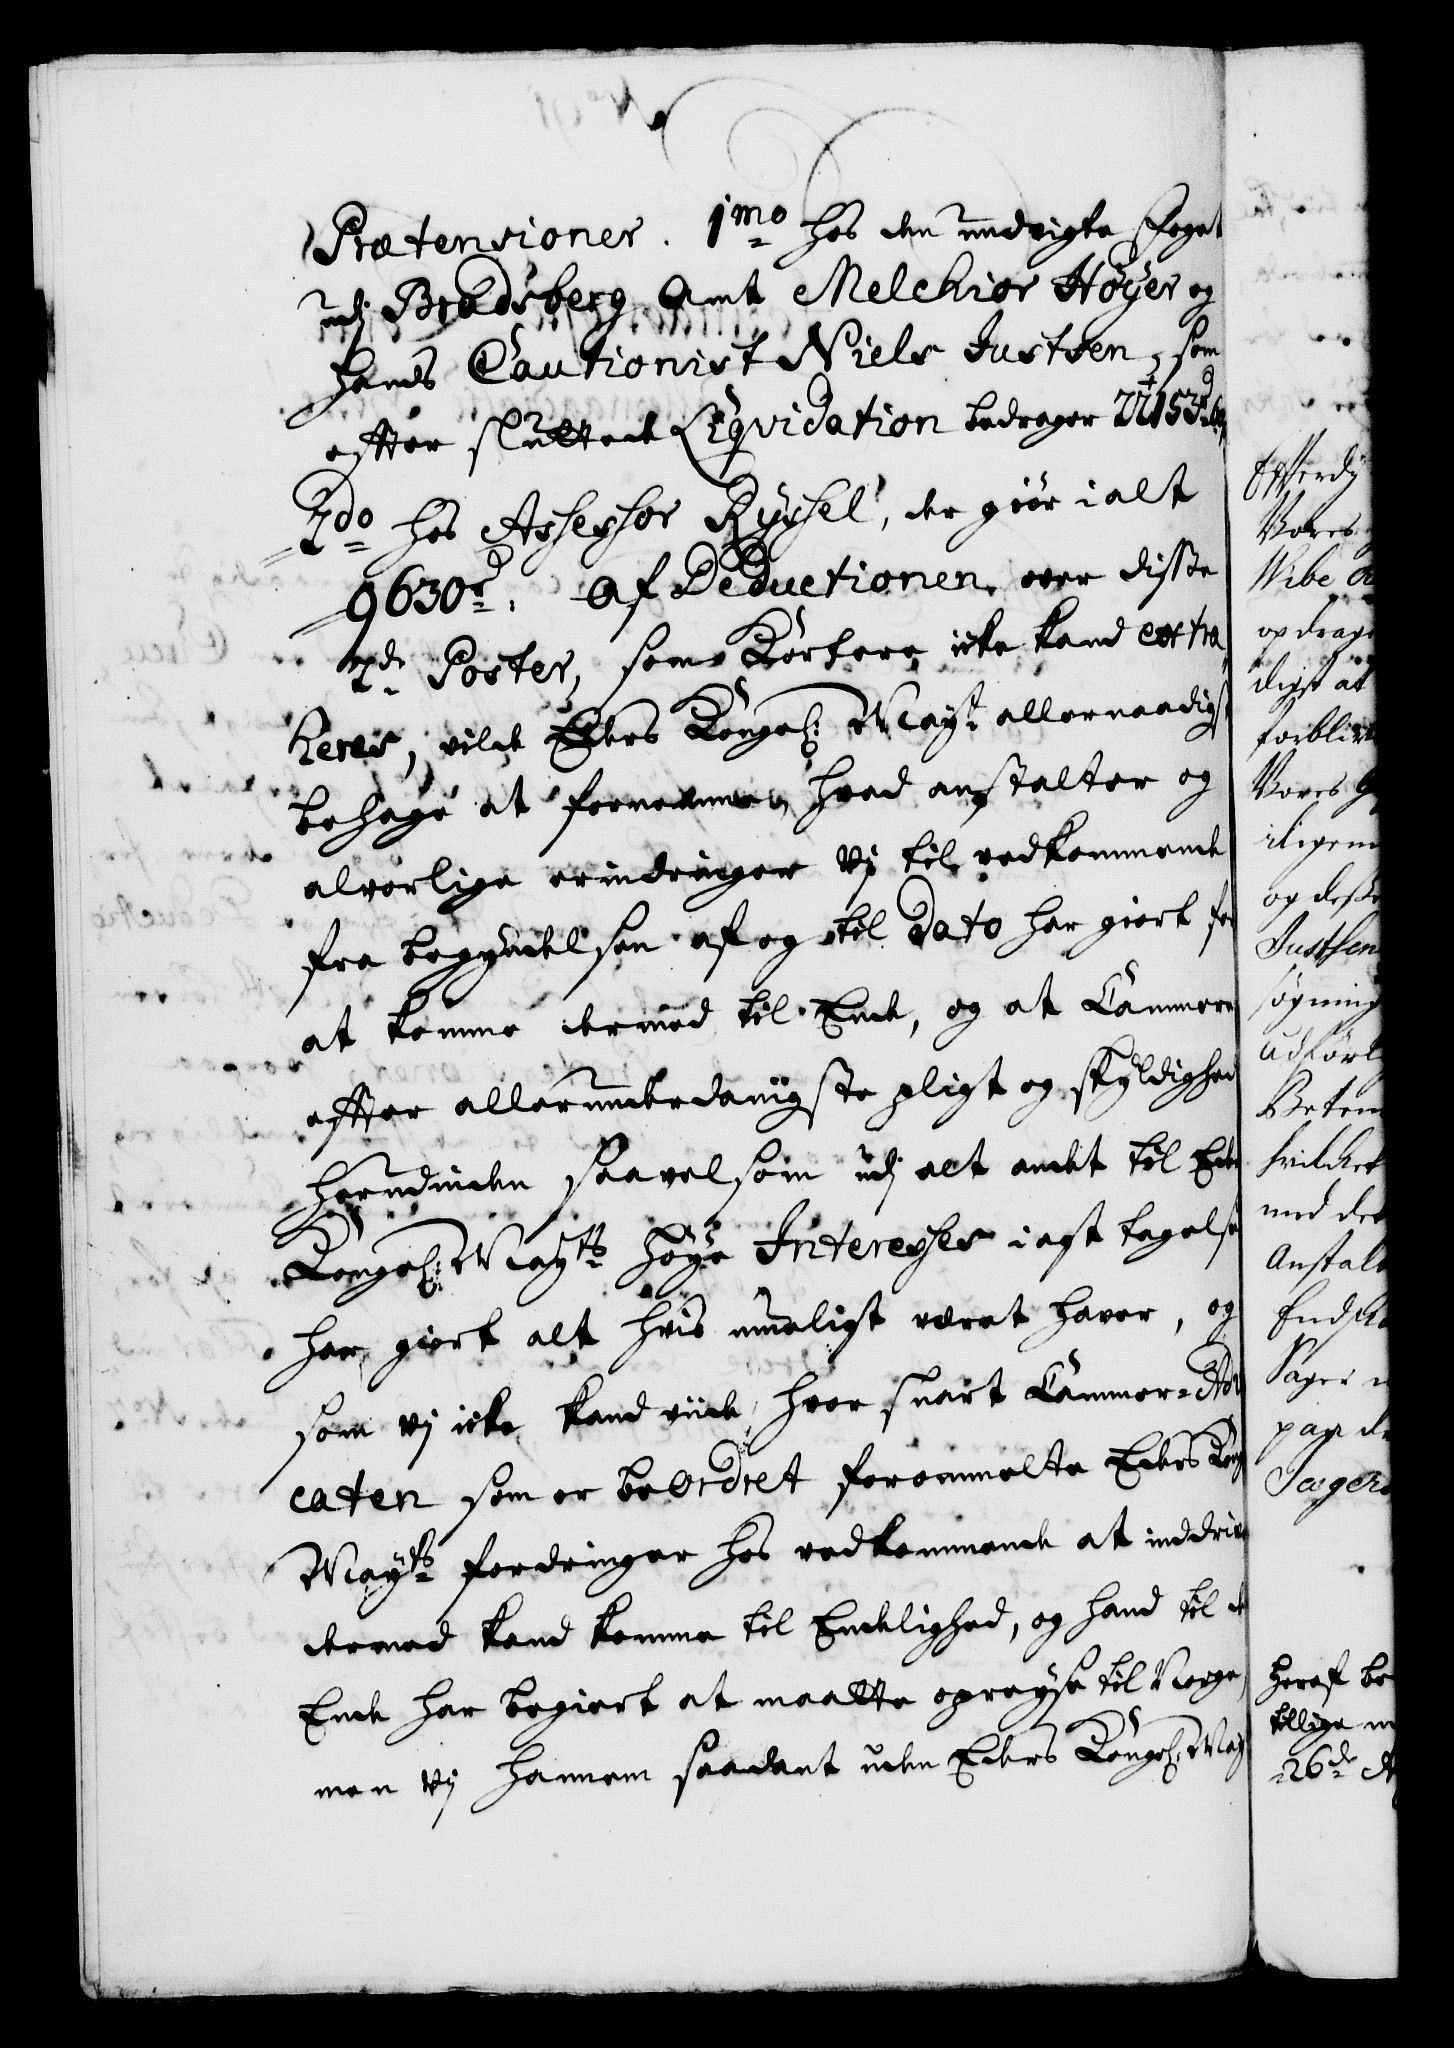 Prætensioner. 1mo hos den undvigte Foget
udj Bradsberg Amt Melchior Höyer og
hans Cautionist Niels Justsen, som
efter sluttede Liqvidation bedrager 22153rd
2do hos Assessor Ryssel, der giör i alt
9630rd. Af Deductionen over disse
2de Poster, som Kortere icke kand extra-
heres, vilde Eders Kongel: Mayt allernaadigst
behage at fornemme, hvad anstalter og
alvorlige erindringer vj til vedkommende
fra begyndelsen af og til Dato har giort for
at komme dermed til Ende, og at Cammeret
efter allerunderdanigste pligt og skyldighed
herudinden saavelsom udj alt andet til Eders
Kongel: Mayts höye Interesses iagttagelse
har giort alt hvis mueligt været haver, og
som vj icke kand viide, hvor snart Cammer-Advo
caten som er beordret forommelte Eders Kongl
Mayts fordringer hos vedkommende at inddrive
dermed kand komme til Endelighed, og hand til d
Ende har begiert at maatte opreyse til Norge,
men vj hannem saadant uden Eders Kongel: May
Efterdj
Vores
Wibe
opdrage
digst at
forblive
Vores
iligem
og desse
Justsen
søgning
udførl
Betem
hvilcket
med der
Anstalt
Endsk
Sager
paa de
Jæger
heraf be
tillige m
26de A